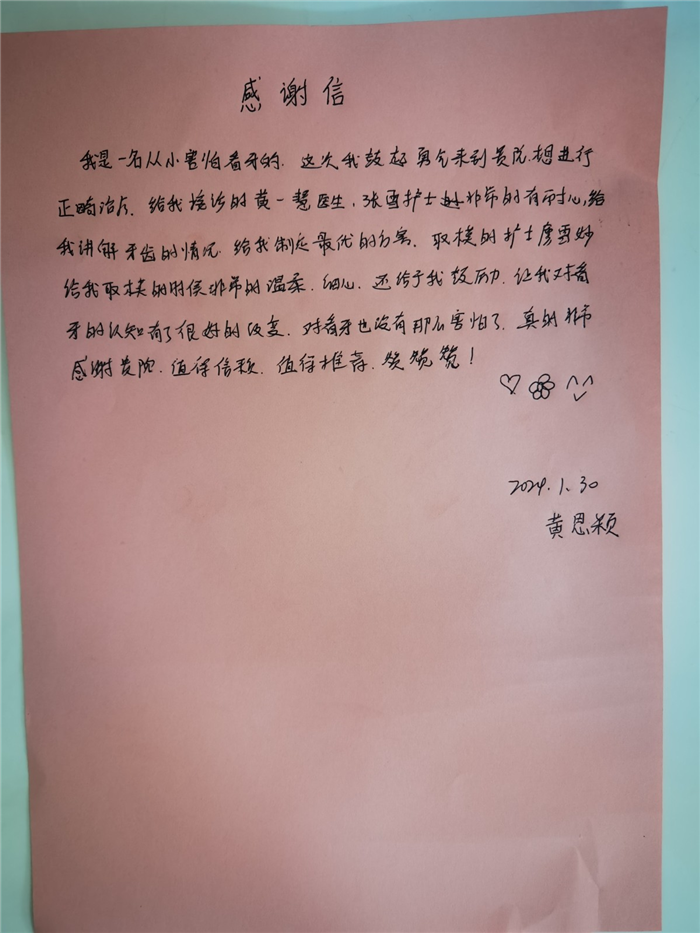 感谢信
我是一名从小害怕看牙的. 这次我鼓起勇气来到贵院.想进行
正畸治疗. 给我接诊的黄一慧医生,张雪护士 非常的有耐心,给
我讲解牙齿的情况. 给我制定最优的方案. 取模的护士廖雪妙
给我取模的时候非常的温柔. 细心. 还给予我鼓励. 让我对看
牙的认知有了很好的改变. 对看牙也没有那么害怕了. 真的非常
感谢贵院. 值得信赖. 值得推荐. 赞赞赞!
2024.1.30
黄恩颖